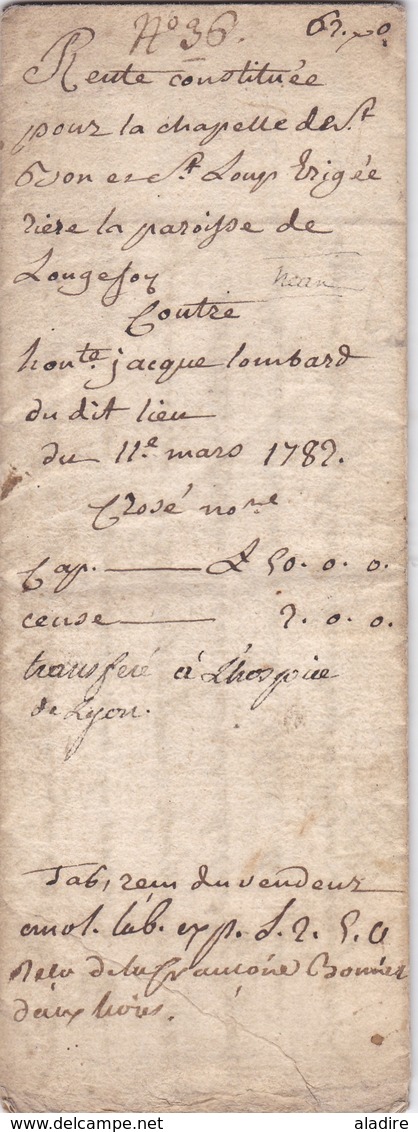 N.o 36.
Rente constituée
pour la chapelle de St
Yvon et St Loup Erigée
riere la paroisse de
Longefoy
Contre
hon.te jacque lombard
du dit lieu
du 11.e mars 1782.
Crosé no.re
Cap. £ 50. 0. 0.
cense 2. 0. 0.
transferé à L'hospice
de Lyon.
Tab, rem du vendeur
emol. tab. exp. L. 2. 5. 0
antoine Bonnet